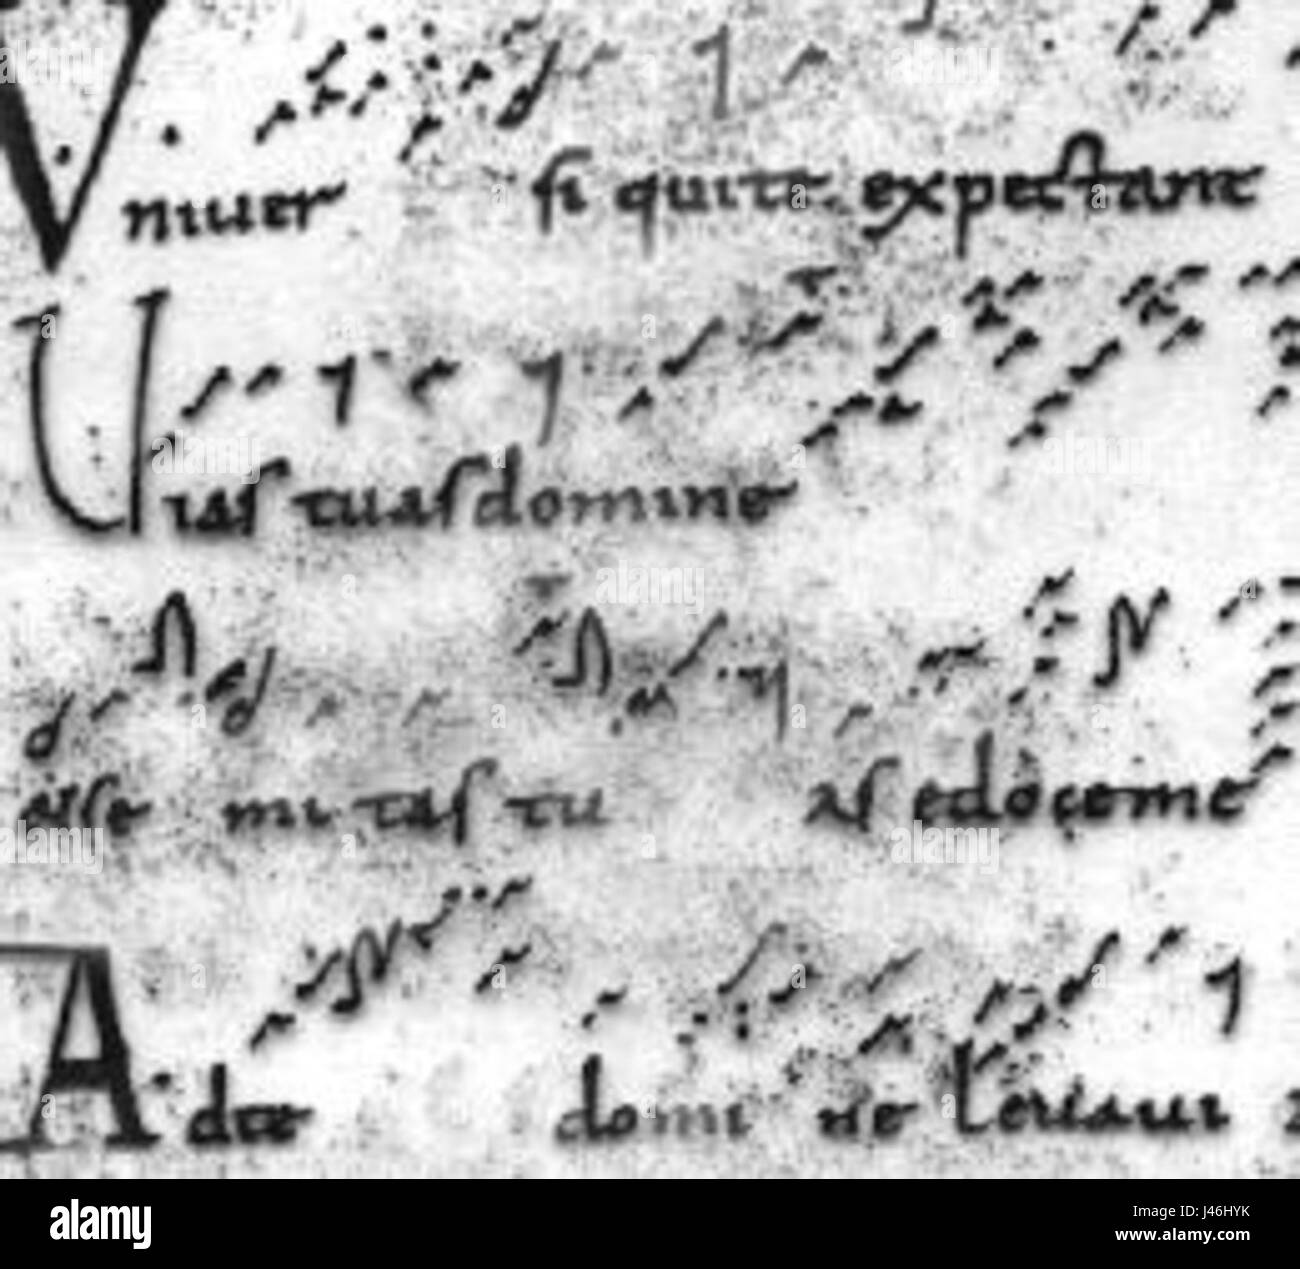 Vniuer si qui te expectant
Uias tuas domine
as edoceme
Ad te domi ne leuaui
alamy
Image ID: J46HYK
www.alamy.com